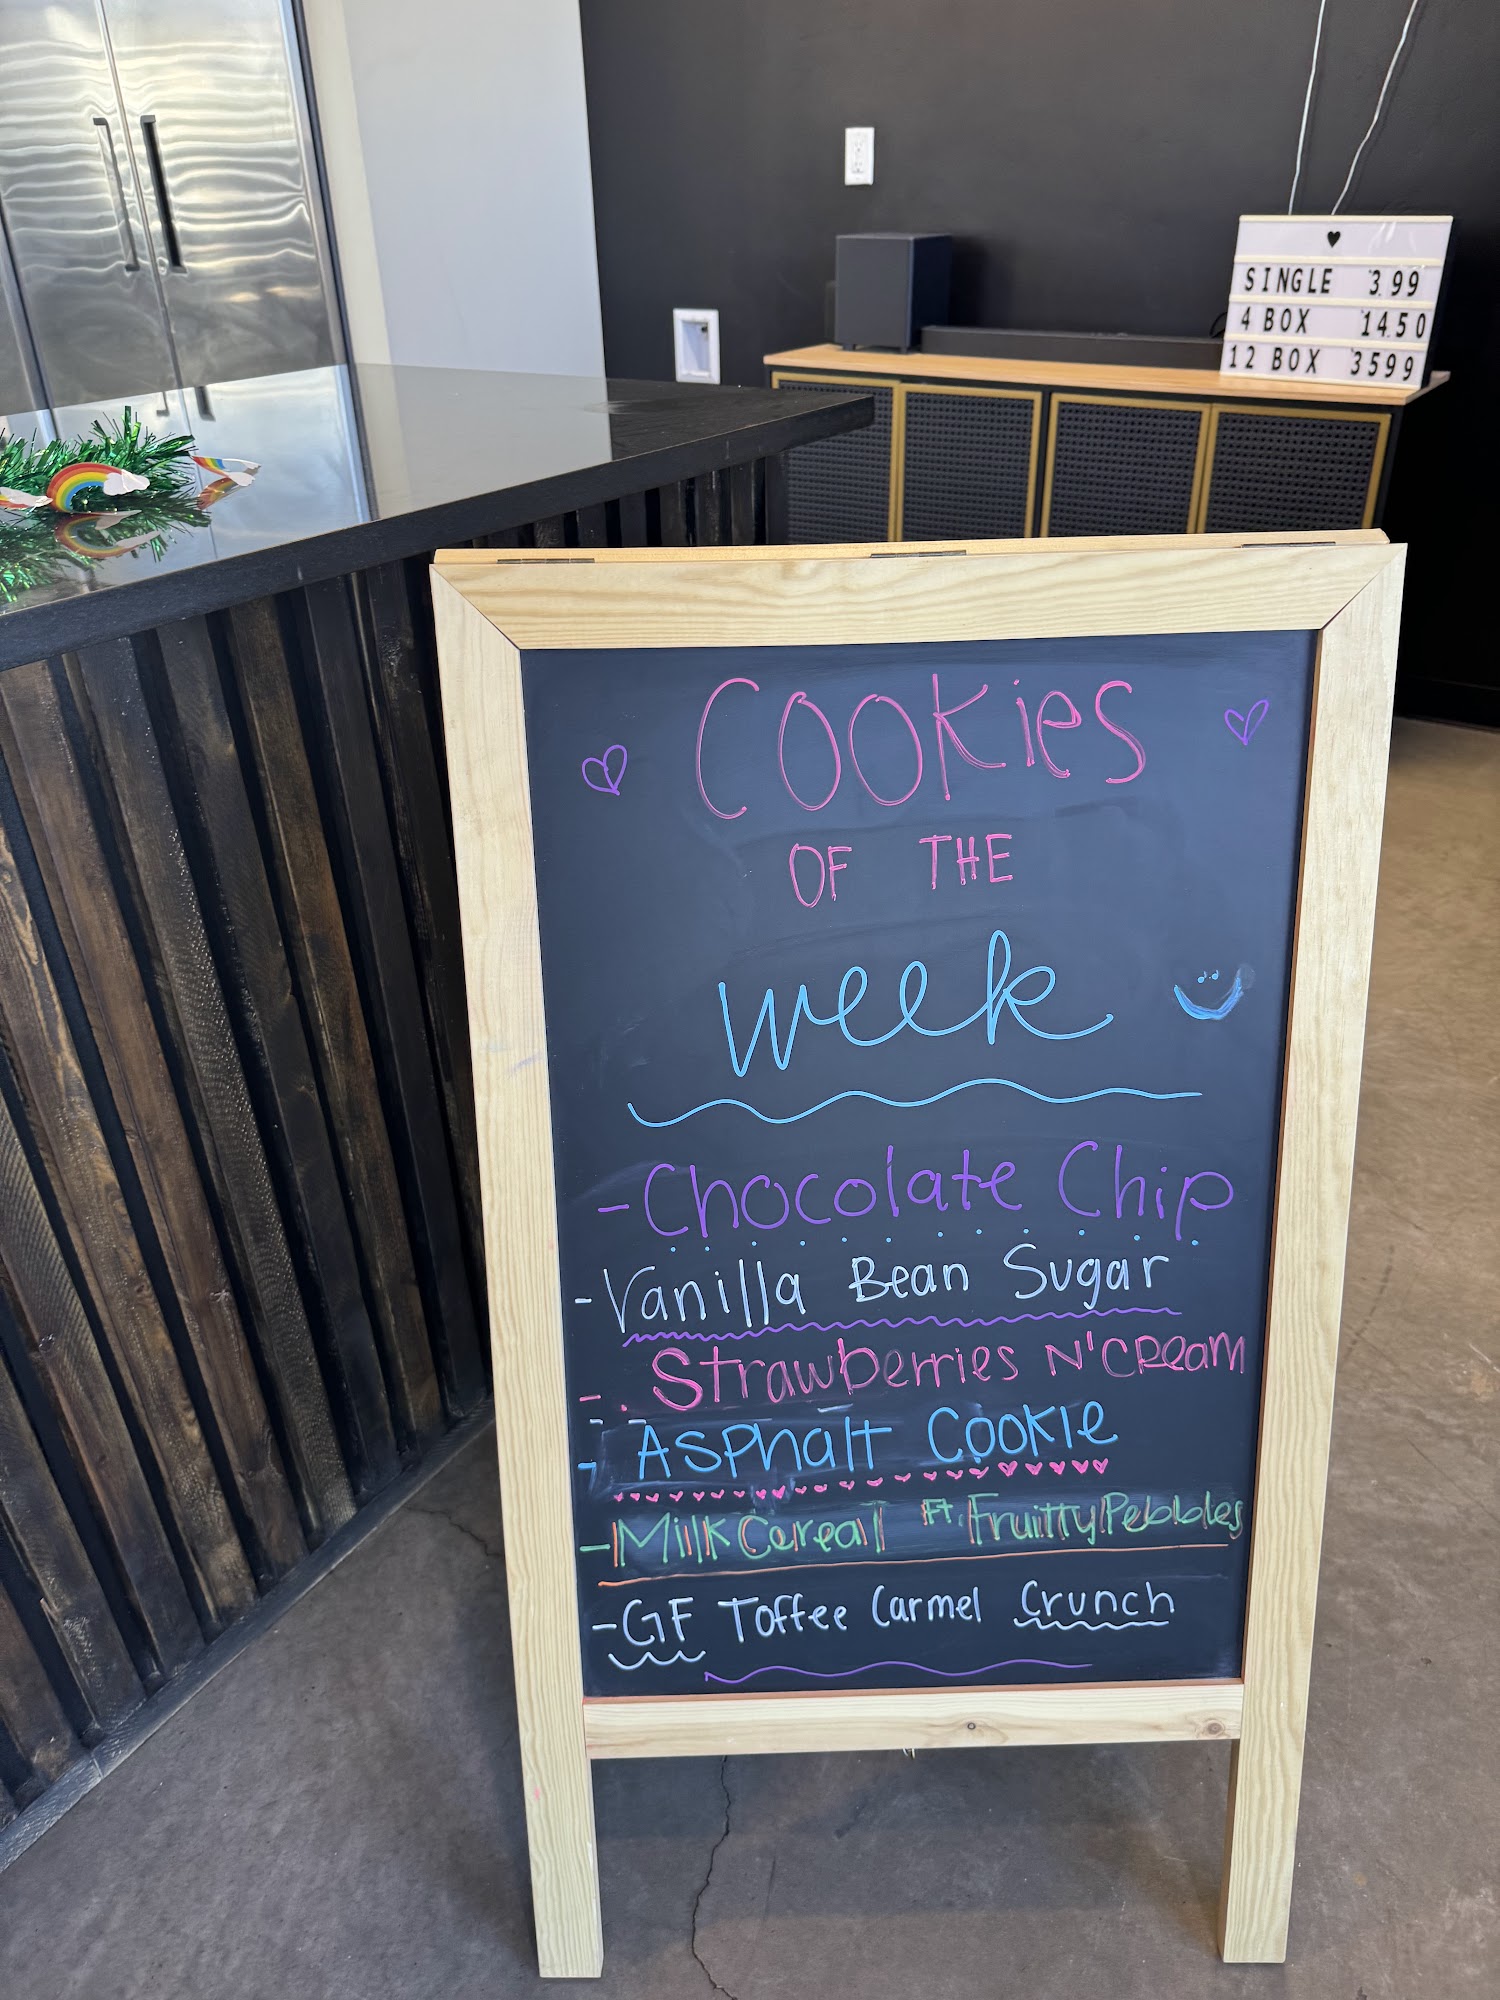 SINGLE 3.99
4 BOX 14.50
12 BOX 3599
COOKies
OF THE
week
-Chocolate Chip
-Vanilla Bean Sugar
- Strawberries N'CREam
- ASphalt COOKIE
-Milk Cereal Ft. Fruitty Pebbles
-GF Toffee Carmel Crunch